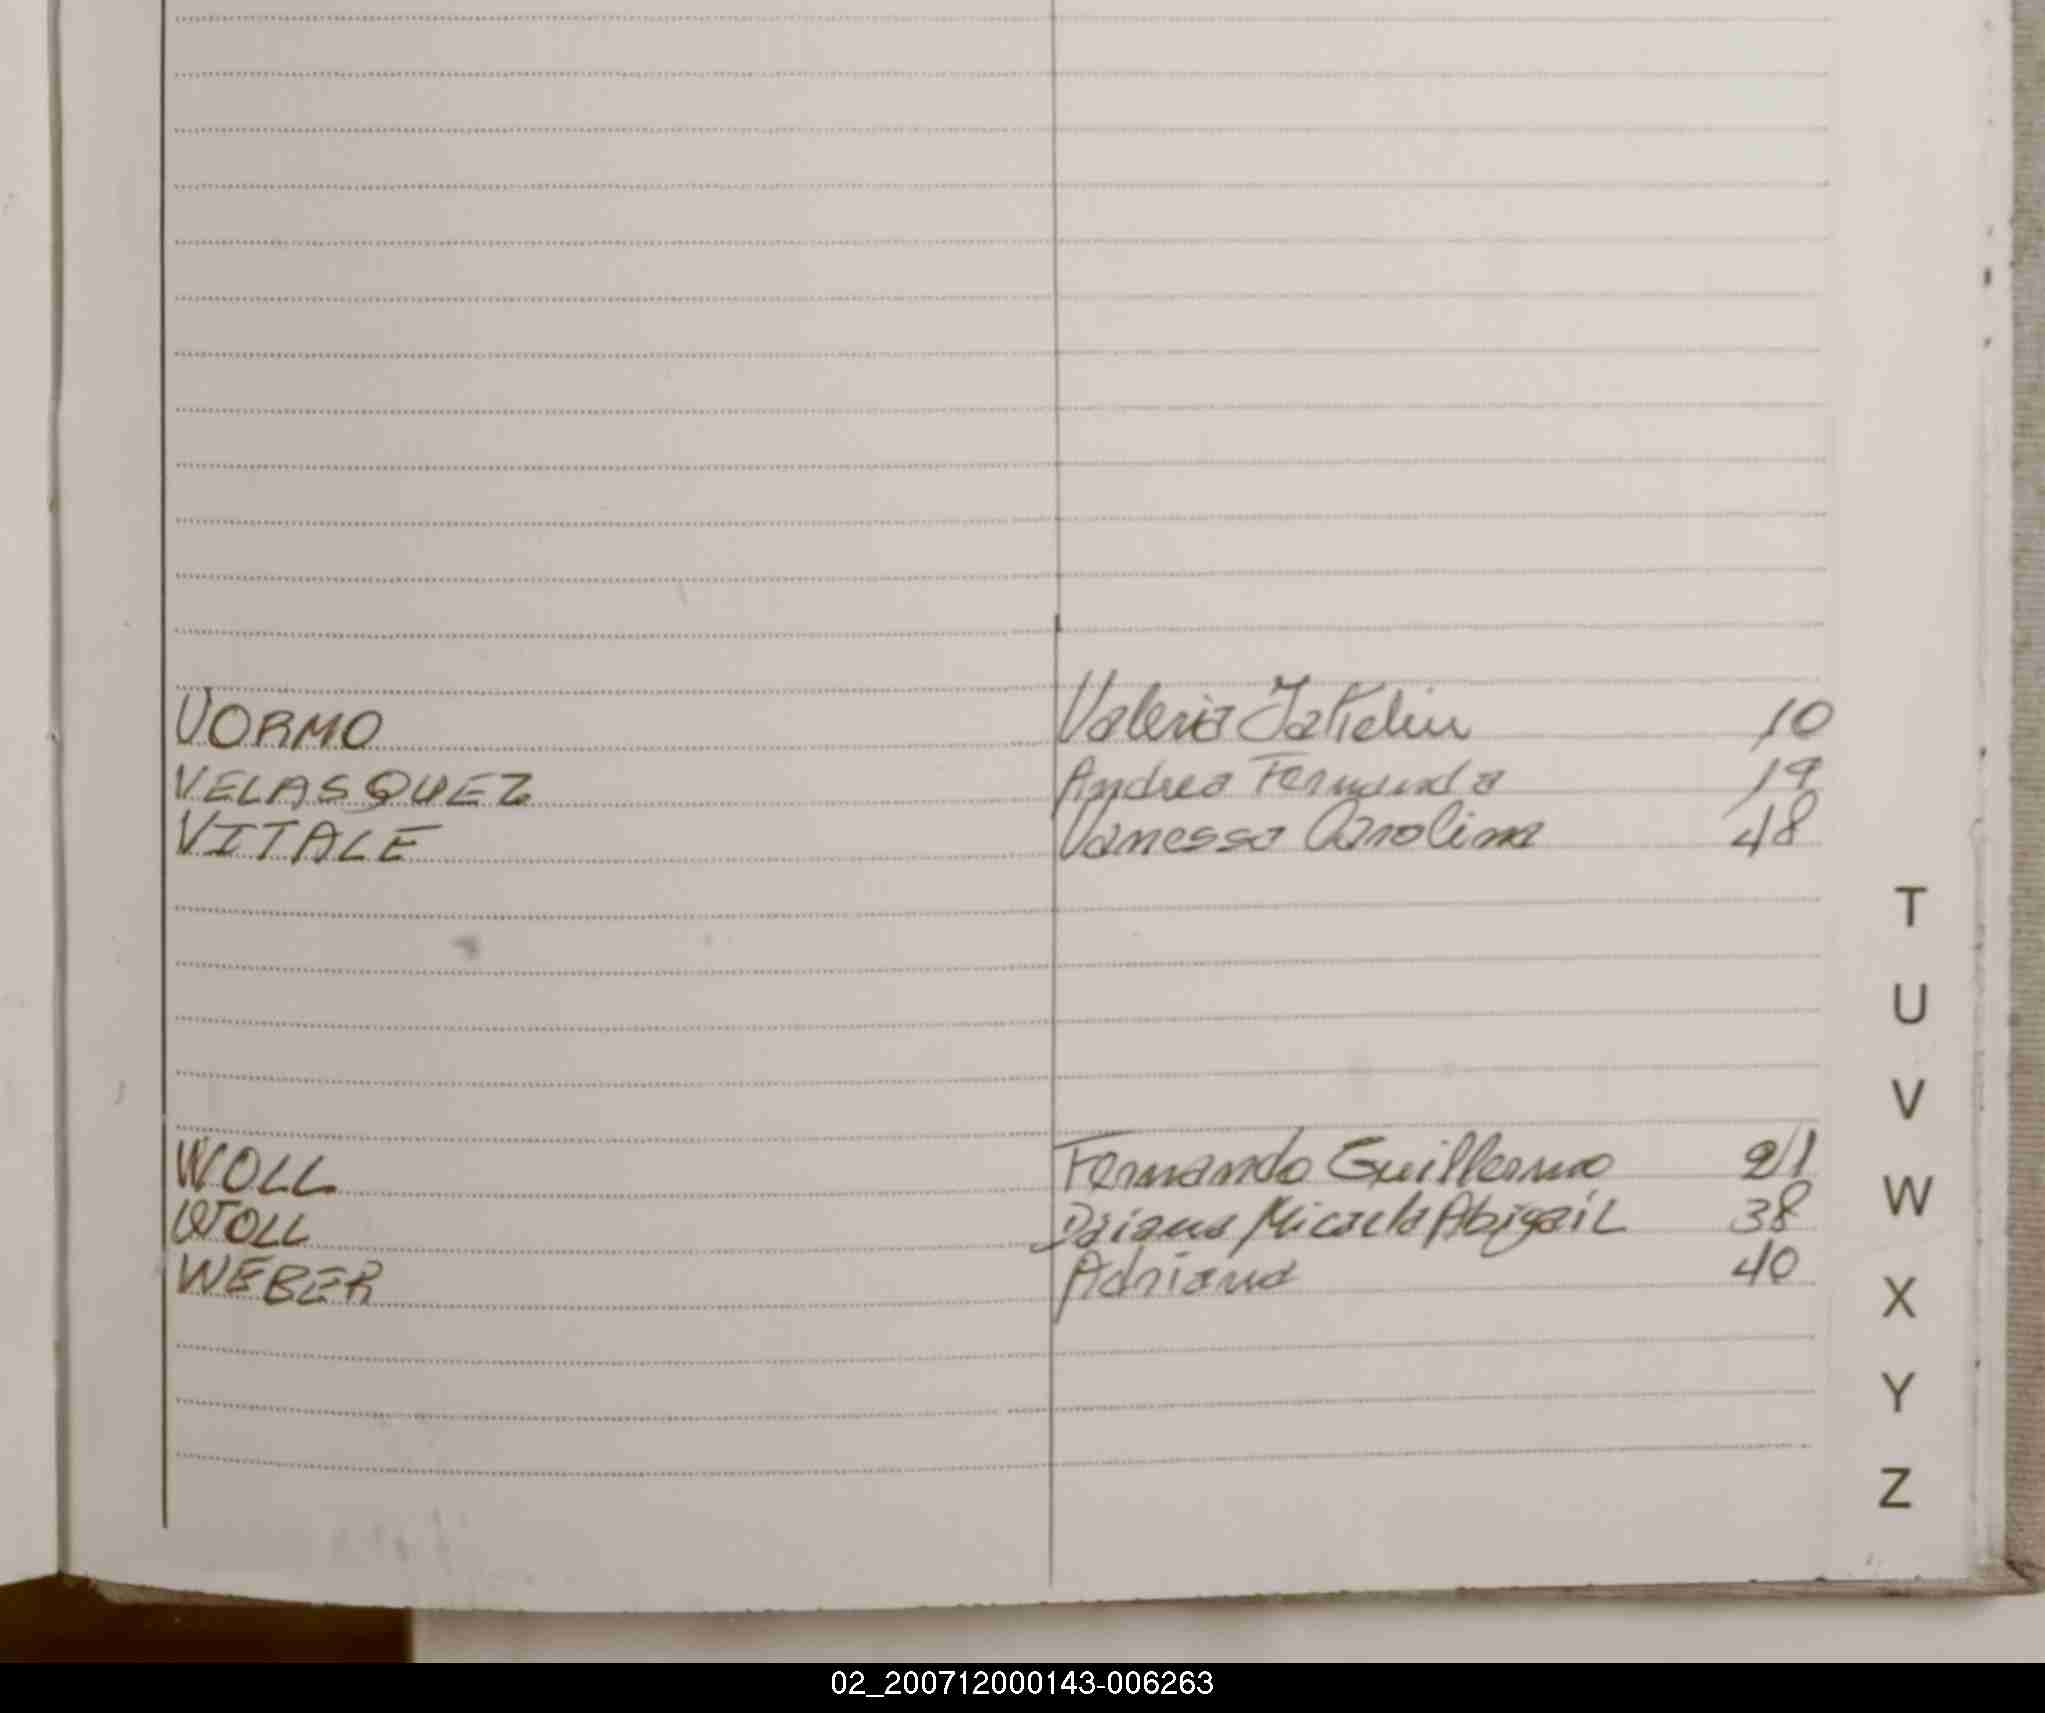 VORMO Valeria Jakelin 10
VELASQUEZ Andrea Fernanda 19
VITALE Vanessa Carolina 48
T
U
V
WOLL Fernando Guillermo 21
W
WOLL Daiana Micaela Abigail 38
WEBER Adriana 40
X
Y
Z
02_200712000143-006263